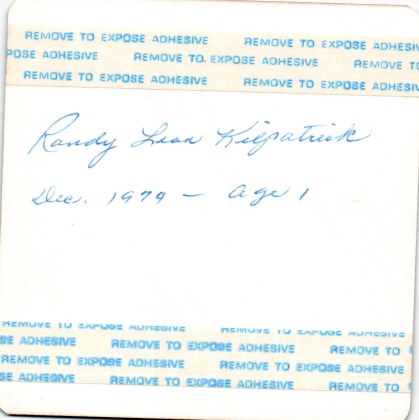 REMOVE TO EXPOSE ADHESIVE REMOVE TO EXPOSE ADHESIV
POSE ADHESIVE REMOVE TO EXPOSE ADHESIVE REMOVE TO
REMOVE TO EXPOSE ADHESIVE REMOVE TO EXPOSE ADHESIV
Randy Leon Kilpatrick
Dec. 1974 — age 1
REMOVE TO EXPOSE ADHESIVE REMOVE TO EXPOSE ADHESIVE
SE ADHESIVE REMOVE TO EXPOSE ADHESIVE REMOVE TO
REMOVE TO EXPOSE ADHESIVE REMOVE TO EXPOSE ADHESIVE
SE ADHESIVE REMOVE TO EXPOSE ADHESIVE REMOVE TO